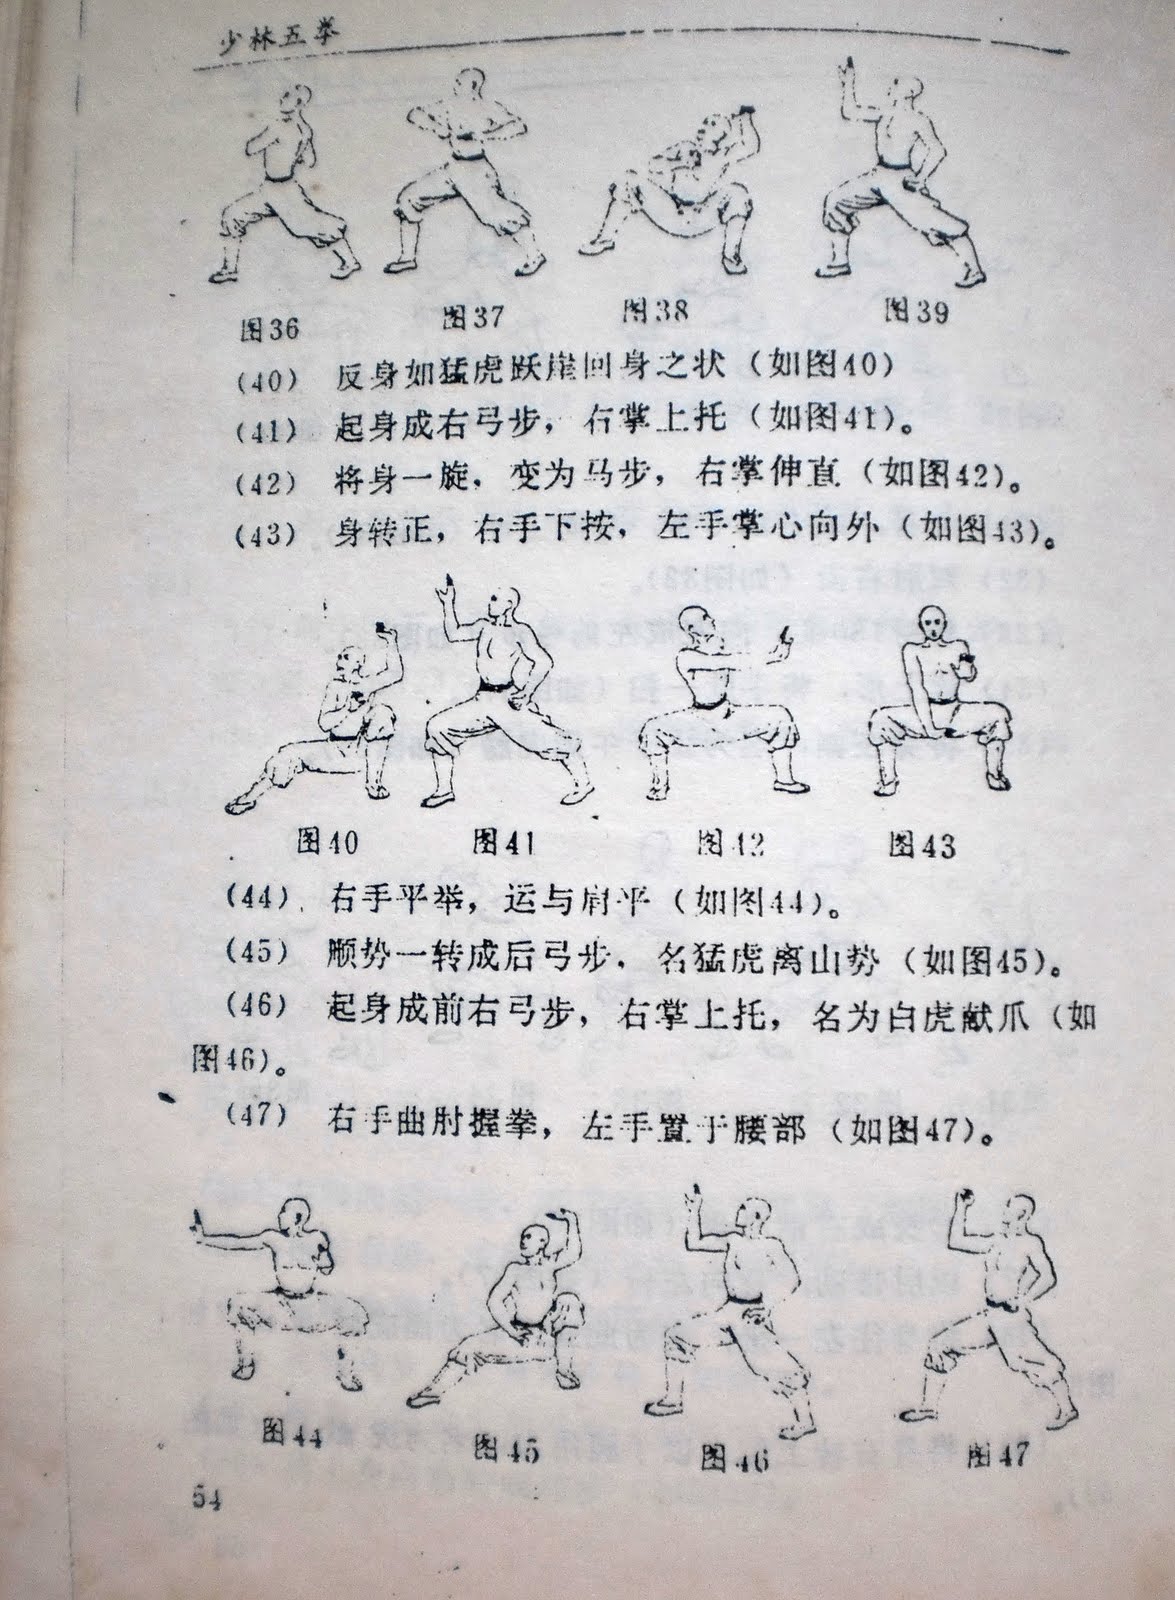 少林五拳
图36 图37 图38 图39
(40) 反身如猛虎跃崖回身之状（如图40）
(41) 起身成右弓步，右掌上托（如图41）。
(42) 将身一旋，变为马步，右掌伸直（如图42）。
(43) 身转正，右手下按，左手掌心向外（如图43）。
图40 图41 图42 图43
(44) 右手平举，运与肩平（如图44）。
(45) 顺势一转成后弓步，名猛虎离山势（如图45）。
(46) 起身成前右弓步，右掌上托，名为白虎献爪（如
图46）。
(47) 右手曲肘握拳，左手置于腰部（如图47）。
图44 图45 图46 图47
54